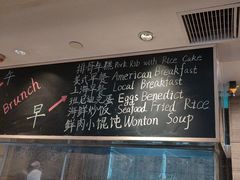 午
Brunch
早
排骨年糕 Pork Rib with Rice Cake
美式早餐 American Breakfast
上海早餐 Local Breakfast
班尼迪克蛋 Eggs Benedict
海鲜炒饭 Seafood Fried Rice
鲜肉小馄饨 Wonton Soup